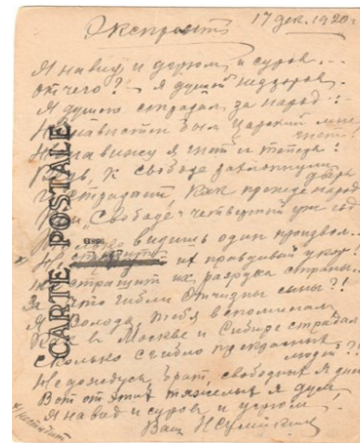 Экспромт 17 дек. 1920 г.
Я на вид и угрюм, и суров...
От чего? – я душой нездоров.
Я душою страдал за народ:
Ненавистен был царский мне
гнет.
Ненавижу я гнет и теперь!
Ведь к свободе захлопнули
дверь
И страдает, как прежде народ
При „Свободе" четвертый уж год
видишь один произвол..
Не их правдивый укор!
Не страшит их разруха страны.
За что гибли Отчизны сыны?!
Я, Володя, тебя вспоминал,
Как в Москве и Сибири страдал
Сколько сгибло прекрасных
людей?!
Не дождусь, брат, свободных я дней
Вот от этих тяжелых я дум,
Я на вид и суров, и угрюм.
Ваш
CARTE POSTALE